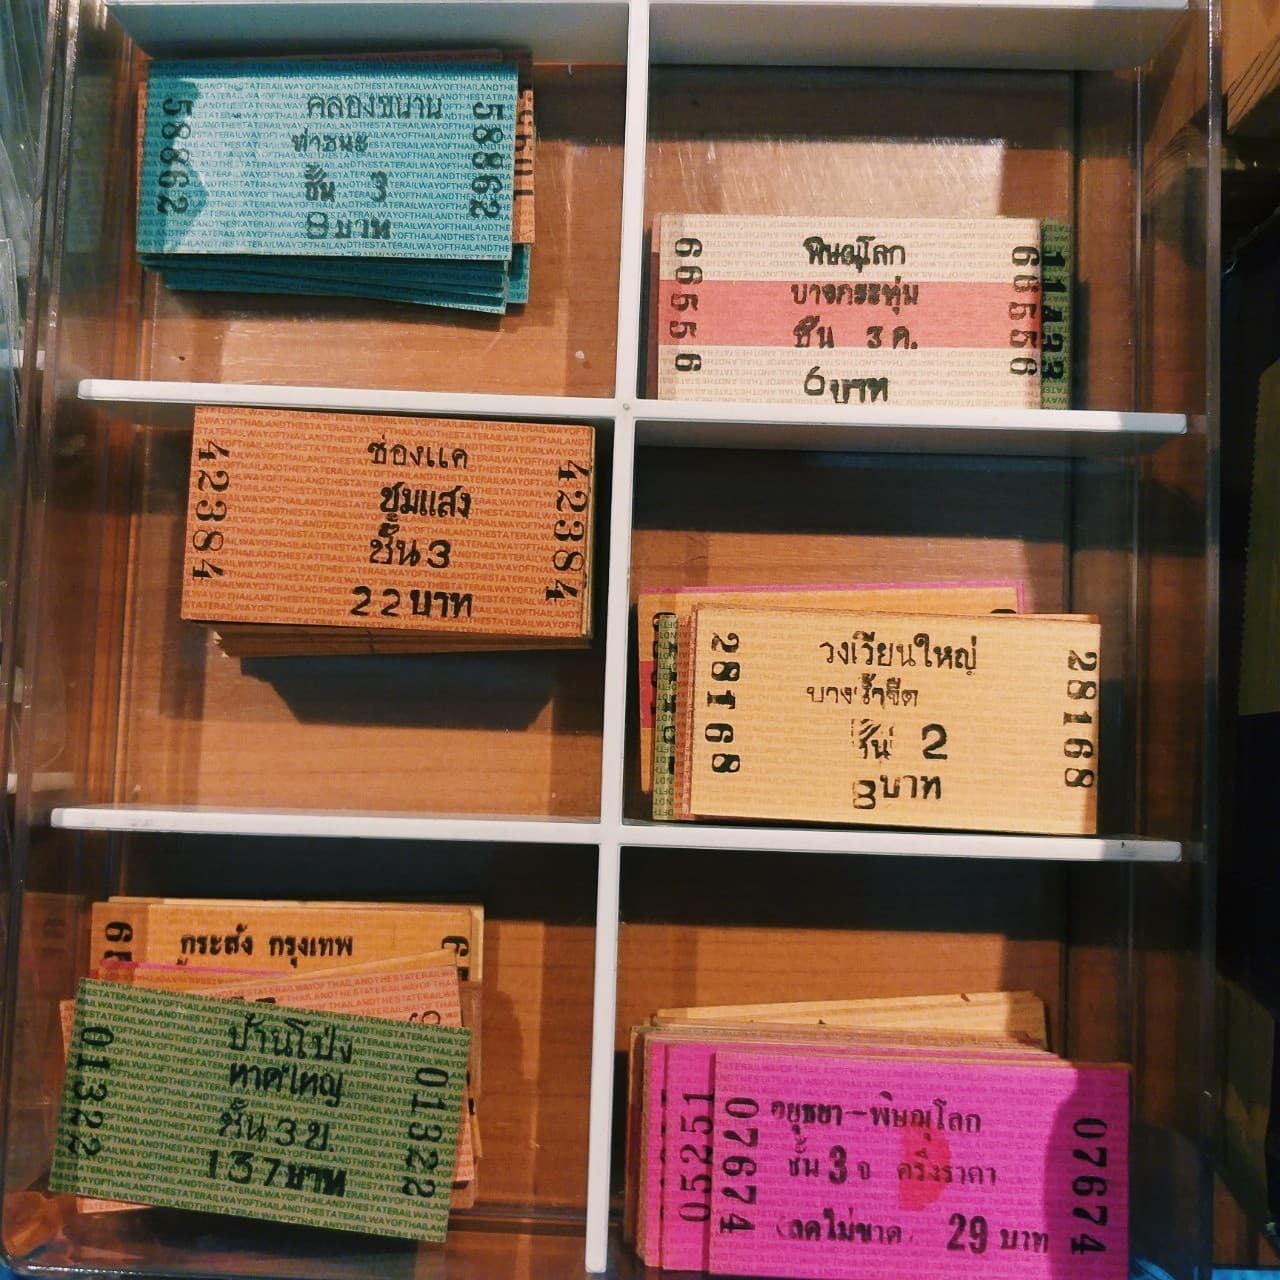 58662
คลองขนาน
ท่าชนะ
ชั้น 3
8 บาท
58862
66556
พิษณุโลก
บางกระทุ่ม
ชั้น 3 ค.
6 บาท
66556
11433
42384
ช่องแค
ชุมแสง
ชั้น 3
22 บาท
42384
28168
วงเวียนใหญ่
บางน้ำจืด
ชั้น 2
8 บาท
28168
กระสัง กรุงเทพ
01322
บ้านโป่ง
หาดใหญ่
ชั้น 3 ข.
137 บาท
01322
05251
07674
อยุธยา - พิษณุโลก
ชั้น 3 จ ครึ่งราคา
(ลดไม่ขาด) 29 บาท
07674